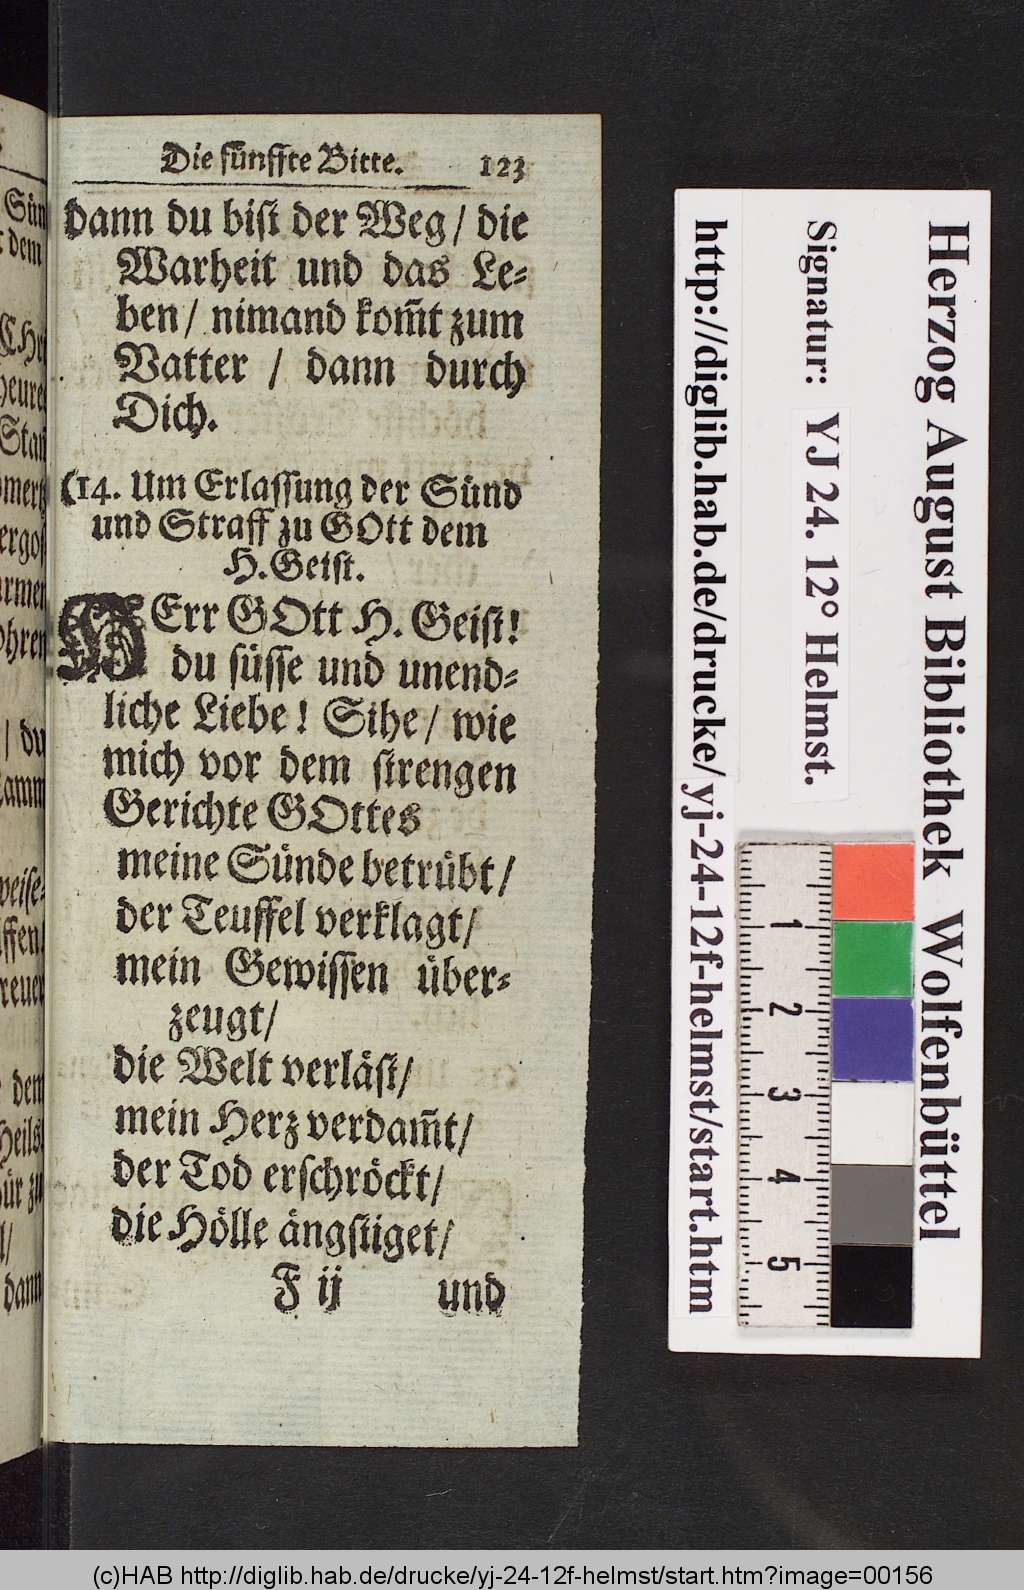 Die fünffte Bitte. 123
dann du bist der Weg / die
Warheit und das Le-
ben / nimand kom̃t zum
Vatter / dann durch
Dich.
(14. Um Erlassung der Sünd
und Straff zu GOtt dem
H. Geist.
HErr GOtt H. Geist!
du süsse und unend-
liche Liebe! Sihe / wie
mich vor dem strengen
Gerichte GOttes
meine Sünde betrübt /
der Teuffel verklagt /
mein Gewissen über-
zeugt /
die Welt verläst /
mein Herz verdam̃t /
der Tod erschröckt /
die Hölle ängstiget /
F ij und
Sün
dem
heure
Stan
ergos
ohren
/ du
weise-
ffen!
dem
Heils
ür zu
dann
Herzog August Bibliothek Wolfenbüttel
Signatur: YJ 24. 12° Helmst.
http://diglib.hab.de/drucke/yj-24-12f-helmst/start.htm
1
2
3
4
5
(c)HAB http://diglib.hab.de/drucke/yj-24-12f-helmst/start.htm?image=00156